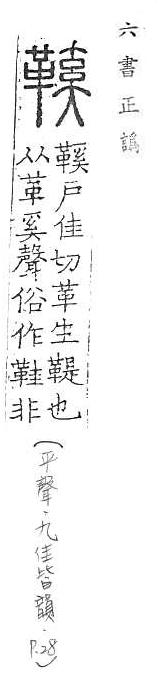 六書正譌
鞵
鞵戶佳切革生鞮也
从革奚聲俗作鞋非
(平聲.九佳皆韻.P.28)